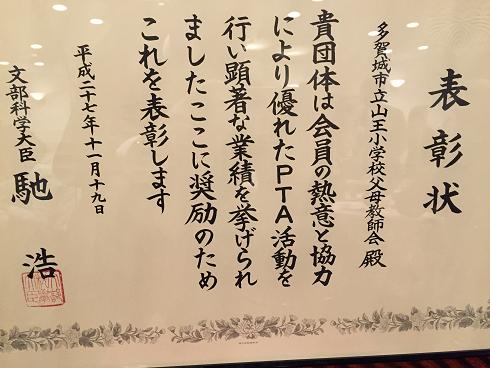 表彰状
多賀城市立山王小学校父母教師会 殿
貴団体は会員の熱意と協力
により優れたPTA活動を
行い顕著な業績を挙げられ
ましたここに奨励のため
これを表彰します
平成二十七年十一月十九日
文部科学大臣 馳 浩